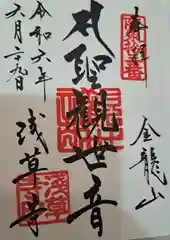 奉拝
金龍山
聖観世音
浅草寺
令和六年
六月二十九日